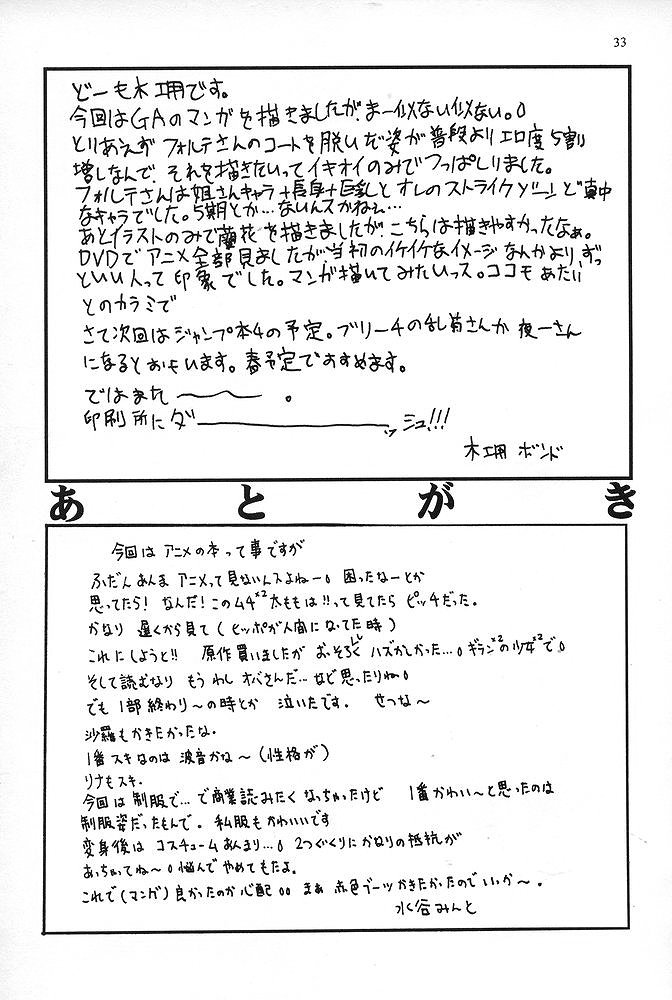 33
どーも木工用です。
今回はGAのマンガを描きましたが、まー似ない似ない。
とりあえず フォルテさんのコートを脱いだ姿が普段よりエロ度5割
増しなんで、それを描きたいってイキオイのみでつっぱしりました。
フォルテさんは姐さんキャラ+長身+巨乳と オレのストライクゾーンど真中
なキャラでした。5期とか…ないんスかねぇ…
あとイラストのみで蘭花を描きましたが、こちらは描きやすかったなぁ。
DVDでアニメ全部見ましたが、当初のイケイケなイメージなんかより、ずっ
といい人って印象でした。マンガ描いてみたいっス。ココモあたい
とのカラミで
さて次回はジャンプ本4の予定。ブリーチの乱菊さんか夜一さん
になるとおもいます。春予定でおすすめます。
ではまた〜〜。
印刷所にダーーーッシュ!!!
木工用 ボンド
あとがき
今回は アニメの本って事ですが
ふだんあんま アニメって見ないんスよねー。困ったなーとか
思ってたら! なんだ!このムチ×2太ももは!!って見てたら ピッチだった。
かなり 遅くから見て(ヒッポが人間になってた時)
これにしようと!! 原作買いましたが おっそろしくハズかしかった…。ギラン×2の少女×2で。
そして読むなり もう わし オバさんだ… など思ったりね。
でも 1部終わり〜の時とか 泣いたです。 せつな〜
沙羅もかきたかったな。
1番スキなのは 波音かな〜(性格が)
リナもスキ.
今回は 制服で… で商業読みたく なっちゃったけど 1番かわい〜と思ったのは
制服姿だったもんで。 私服もかわいいです
変身後は コスチュームあんまり…。 2つぐくりにかなりの抵抗が
あっちゃってね〜。悩んで やめてもたよ.
これで(マンゲ)良かったのか心配。。 まぁ 赤色ブーツかきたかったので いっか〜.
水谷みんと